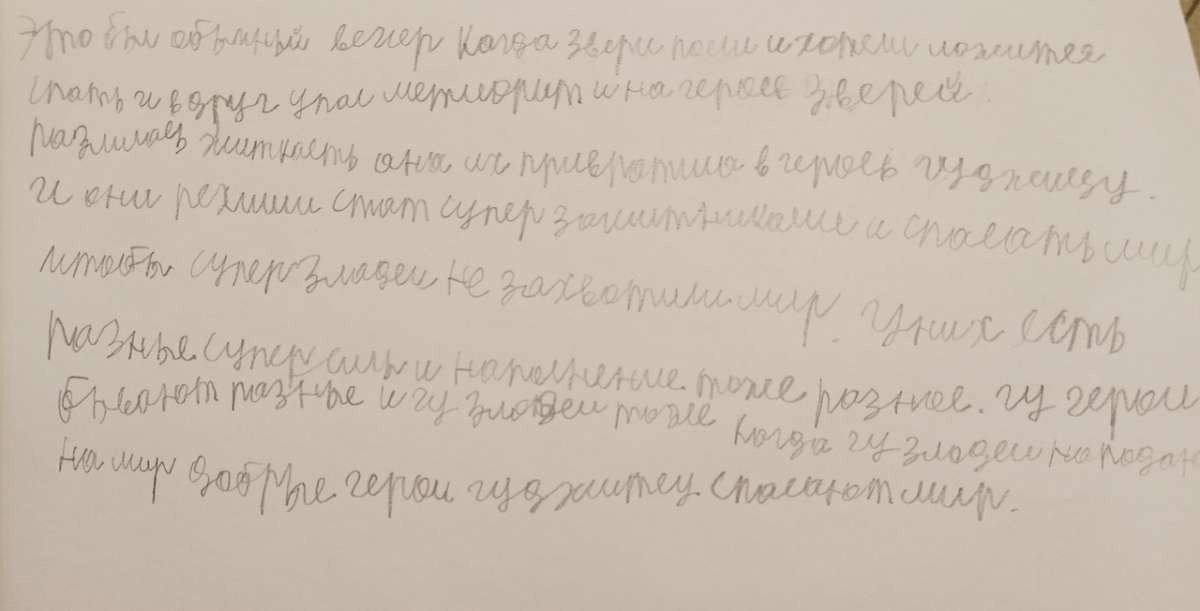 Это был обычный вечер когда звери поели и хотели ложится
спать и вдруг упал метиорит и на героев зверей.
разлилась житкасть она их привратила в героев гуджицу.
И они решили стат супер защитниками и спасать мир
чтобы супер зладеи не захватили мир. У них есть
разные супер силы и наполнение тоже разное. гу герои
бывают разные и гу злодеи тоже когда гу злодеи нападаю
на мир добрые герои гуджитсу спасают мир.